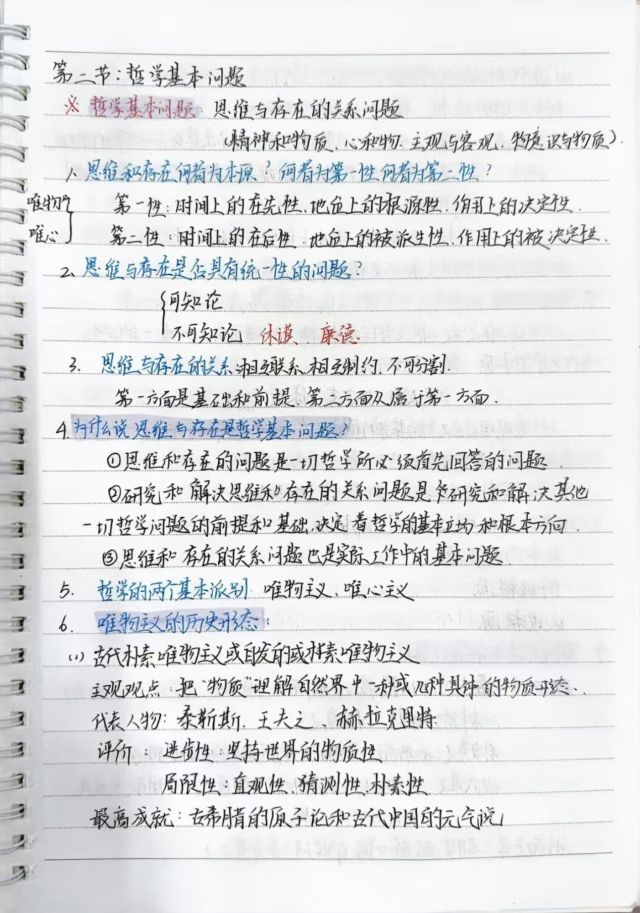 第二节：哲学基本问题
※ 哲学基本问题 思维与存在的关系问题
(精神和物质、心和物、主观与客观、意识与物质)
1、思维和存在何者为本原？何者为第一性何者为第二性？
唯物 第一性：时间上的在先性、地位上的根源性、作用上的决定性.
唯心 第二性：时间上的在后性、地位上的被派生性、作用上的被决定性.
2. 思维与存在是否具有统一性的问题？
可知论
不可知论 休谟 康德
3. 思维与存在的关系 相互联系、相互制约、不可分割.
第一方面是基础和前提、第二方面从属于第一方面.
4. 为什么说思维与存在是哲学基本问题？
①思维和存在的问题是一切哲学所必须首先回答的问题.
②研究和解决思维和存在的关系问题是研究和解决其他
一切哲学问题的前提和基础，决定着哲学的基本立场和根本方向.
③思维和存在的关系问题也是实际工作中的基本问题
5. 哲学的两个基本派别 唯物主义、唯心主义
6. 唯物主义的历史形态：
(1) 古代朴素唯物主义或自发的或朴素唯物主义
主观观点：把“物质”理解自然界中一种或几种具体的物质形态.
代表人物：泰勒斯、王夫之、赫拉克里特.
评价：进步性：坚持世界的物质性
局限性：直观性、猜测性、朴素性
最高成就：古希腊的原子论和古代中国的元气说